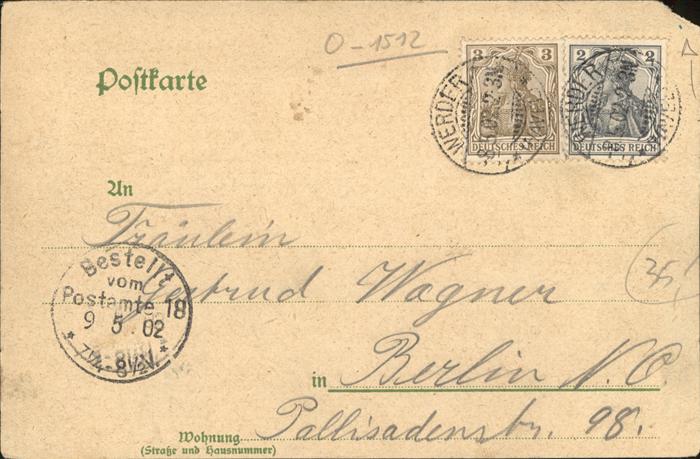 O-1512
3 3
DEUTSCHES REICH
2 2
DEUTSCHES REICH
WERDER
WERDER
Postkarte
An
Fräulein
Gertrud Wagner
in Berlin N.O.
Pallisadenstr. 98.
Wohnung
(Straße und Hausnummer)
Bestellt
vom
Postamte 18
9 5 02
7¼-8½V.